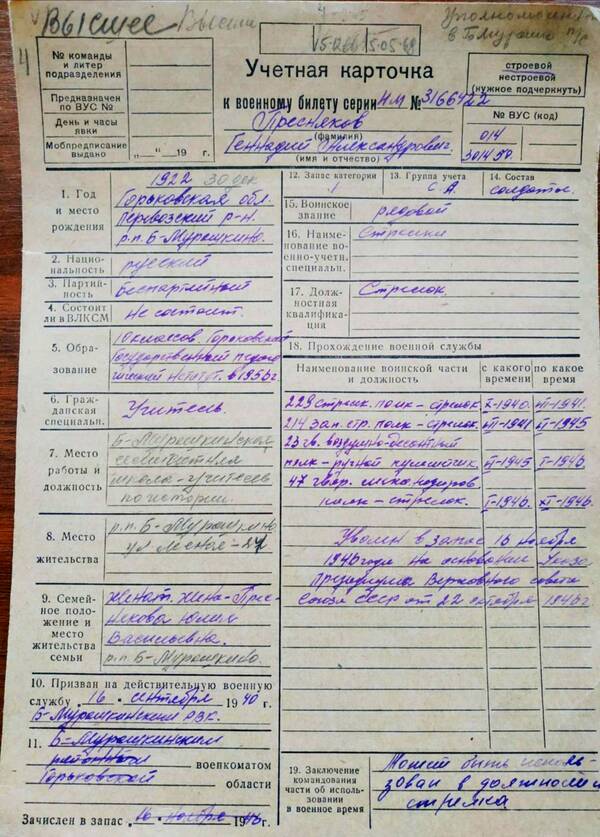 Высшее Высшее
4
Уполномочен
в Б Мурашк
4
№ команды
и литер
подразделения
Предназначен
по ВУС №
День и часы
явки
Мобпредписание
выдано „ “ 19 г.
Учетная карточка
к военному билету серии НМ № 3166422
Пресняков
(фамилия)
Геннадий Александрович
(имя и отчество)
строевой
нестроевой
(нужное подчеркнуть)
№ ВУС (код)
014
301450.
1. Год
и место
рождения
1922 30 дек
Горьковская обл.
Перевозский р-н.
р.п. Б-Мурашкино.
2. Нацио-
нальность
русский
3. Партий-
ность
Беспартийный
4. Состоит
ли в ВЛКСМ
Не состоит.
5. Обра-
зование
10 классов. Горьковский
Государственный педаго-
гический в 1956г.
6. Граж-
данская
специальн.
Учитель.
7. Место
работы и
должность
Б-Мурашкинская
школа-учитель
по истории.
8. Место
жительства
р.п. Б-Мурашкино
9. Семей-
ное поло-
жение и
место
жительства
семьи
Женат. Жена-Прес-
някова Юлия
Васильевна.
р.п. Б-Мурашкино.
10. Призван на действительную военную
службу „16“ сентября 1940 г.
Б-Мурашкинским РВК.
11. Б-Мурашкинским
районном военкоматом
Горьковской области
Зачислен в запас „16“ ноября 1946 г.
12. Запас категории
1
13. Группа учета
С.А.
14. Состав
солдаты.
15. Воинское
звание
рядовой
16. Наиме-
нование во-
енно-учетн.
специальн.
Стрелки
17. Долж-
ностная
квалифика-
ция
Стрелок.
18. Прохождение военной службы
Наименование воинской части
и должность
с какого
времени
по какое
время
229 стрелк. полк - стрелок. X-1940. VII-1941.
214 зап. стр. полк - стрелок. VII-1941 VI-1945
23 гв. воздушно-десантный
полк-ручной пулеметчик. VI-1945 I-1946.
47 гвар. механизиров.
полк-стрелок. I-1946. XI-1946.
Уволен в запас 16 ноября
1946 года на основании Указа
Президиума Верховного совета
Союза ССР от 22 октября 1946г
19. Заключение
командования
части об исполь-
зовании
в военное время
Может быть исполь-
зован в должности
стрелка.